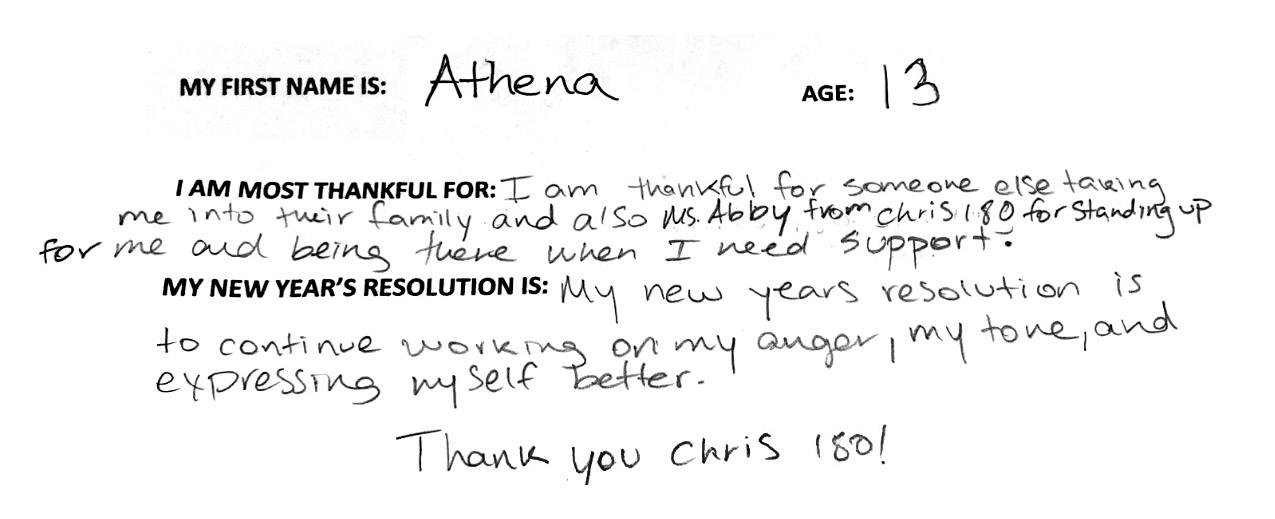 MY FIRST NAME IS: Athena AGE: 13
I AM MOST THANKFUL FOR: I am thankful for someone else taking
me into their family and also Ms. Abby from Chris 180 for Standing up
for me and being there when I need support.
MY NEW YEAR'S RESOLUTION IS: My new years resolution is
to continue working on my anger, my tone, and
expressing myself better.
Thank you Chris 180!